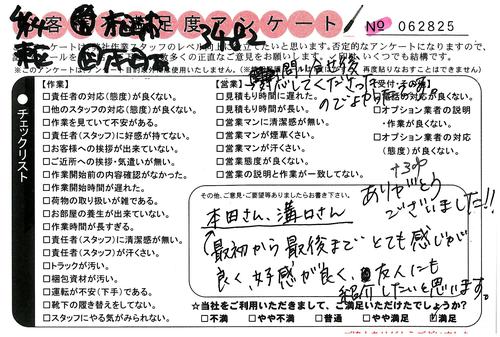 お客様満足度アンケート
No 062825
3482
【作業】
□責任者の対応(態度)が良くない。
□他のスタッフの対応(態度)が良くない。
□作業を見ていて不安がある。
□責任者(スタッフ)に好感が持てない。
□お客様への挨拶が出来ていない。
□ご近所への挨拶・気遣いが無い。
□作業開始前の内容確認がなかった。
□作業開始時間が遅れた。
□荷物の取り扱いが雑である。
□お部屋の養生が出来ていない。
□作業時間が長すぎる。
□責任者(スタッフ)に清潔感が無い。
□責任者(スタッフ)が汗くさい。
□トラックが汚い。
□梱包資材が汚い。
□運転が不安(下手)である。
□靴下の履き替えをしてない。
□スタッフにやる気がみられない。
チェックリスト
【営業】
□見積もり時間に遅れた。
□見積もり時間が長い。
□営業マンに清潔感が無い。
□営業マンが煙草くさい。
□営業マンが汗くさい。
□営業態度が良くない。
□営業の説明と作業が一致してない。
対応が良くない。
□オプション業者の説明
・作業が良くない。
□オプション業者の対応
(態度)が良くない。
ありがとう
ございました!!
その他、ご意見・ご要望等ありましたらお書き下さい。
本田さん、溝口さん
最初から最後まで とても感じが
良く、好感が良く、友人にも
紹介したいと思います。
☆当社をご利用いただきまして、ご満足いただけたでしょうか?
□不満 □やや不満 □普通 □やや満足 ☑満足